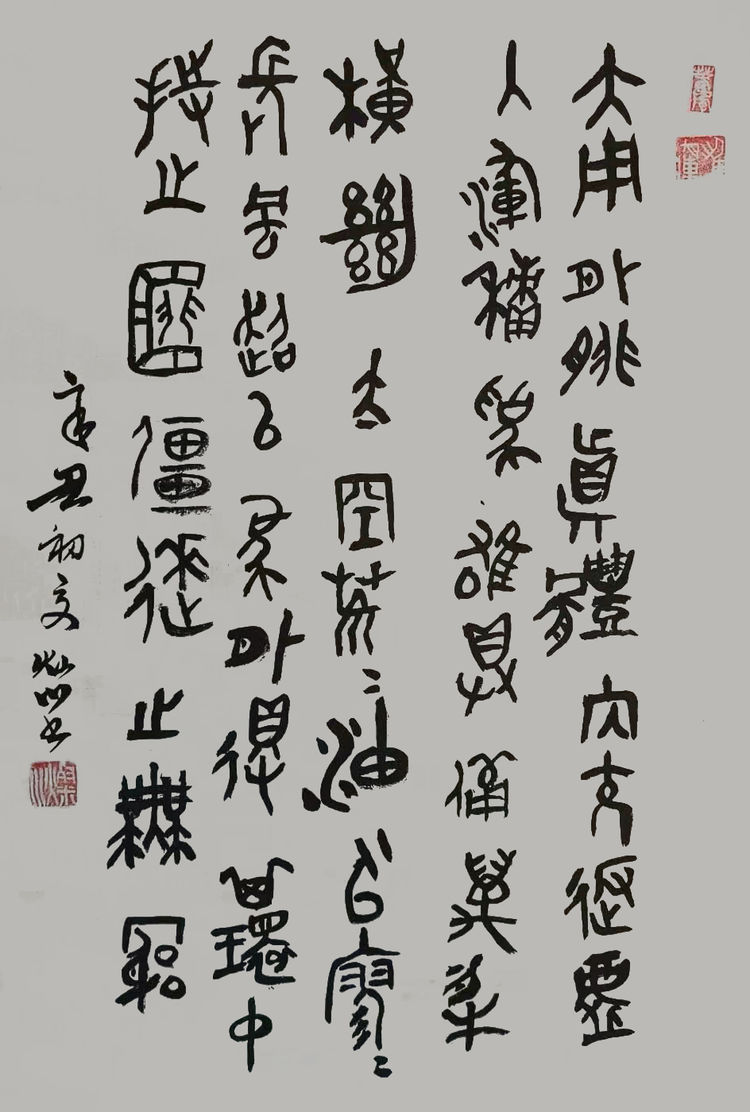 大用外腓真體內充返虛
入渾積為雄具備萬物
橫絕太空荒〻油雲寥〻
長風超以象外得其環中
持之匪強來之無窮
辛丑初夏